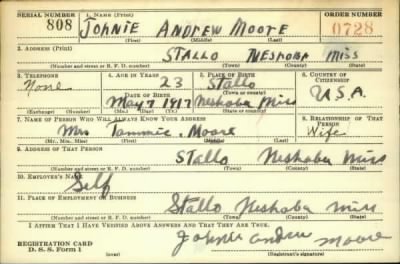 SERIAL NUMBER 1. NAME (Print) ORDER NUMBER
808 JOHNIE ANDREW MOORE 0728
(First) (Middle) (Last)
2. ADDRESS (Print)
STALLO NESHOBA MISS
(Number and street or R. F. D. number) (Town) (County) (State)
3. TELEPHONE 4. AGE IN YEARS 5. PLACE OF BIRTH 6. COUNTRY OF CITIZENSHIP
None 23 Stallo
DATE OF BIRTH (Town or county)
May 7 1917 Neshoba Miss U.S.A.
(Exchange) (Number) (Mo.) (Day) (Yr.) (State or country)
7. NAME OF PERSON WHO WILL ALWAYS KNOW YOUR ADDRESS 8. RELATIONSHIP OF THAT PERSON
Mrs Tammie Moore Wife
(Mr., Mrs., Miss) (First) (Middle) (Last)
9. ADDRESS OF THAT PERSON
Stallo Neshoba Miss
(Number and street or R. F. D. number) (Town) (County) (State)
10. EMPLOYER'S NAME
Self
11. PLACE OF EMPLOYMENT OR BUSINESS
Stallo Neshoba Miss
(Number and street or R. F. D. number) (Town) (County) (State)
I AFFIRM THAT I HAVE VERIFIED ABOVE ANSWERS AND THAT THEY ARE TRUE.
REGISTRATION CARD
D. S. S. Form 1 Johnie Andrew Moore
(Registrant's signature)